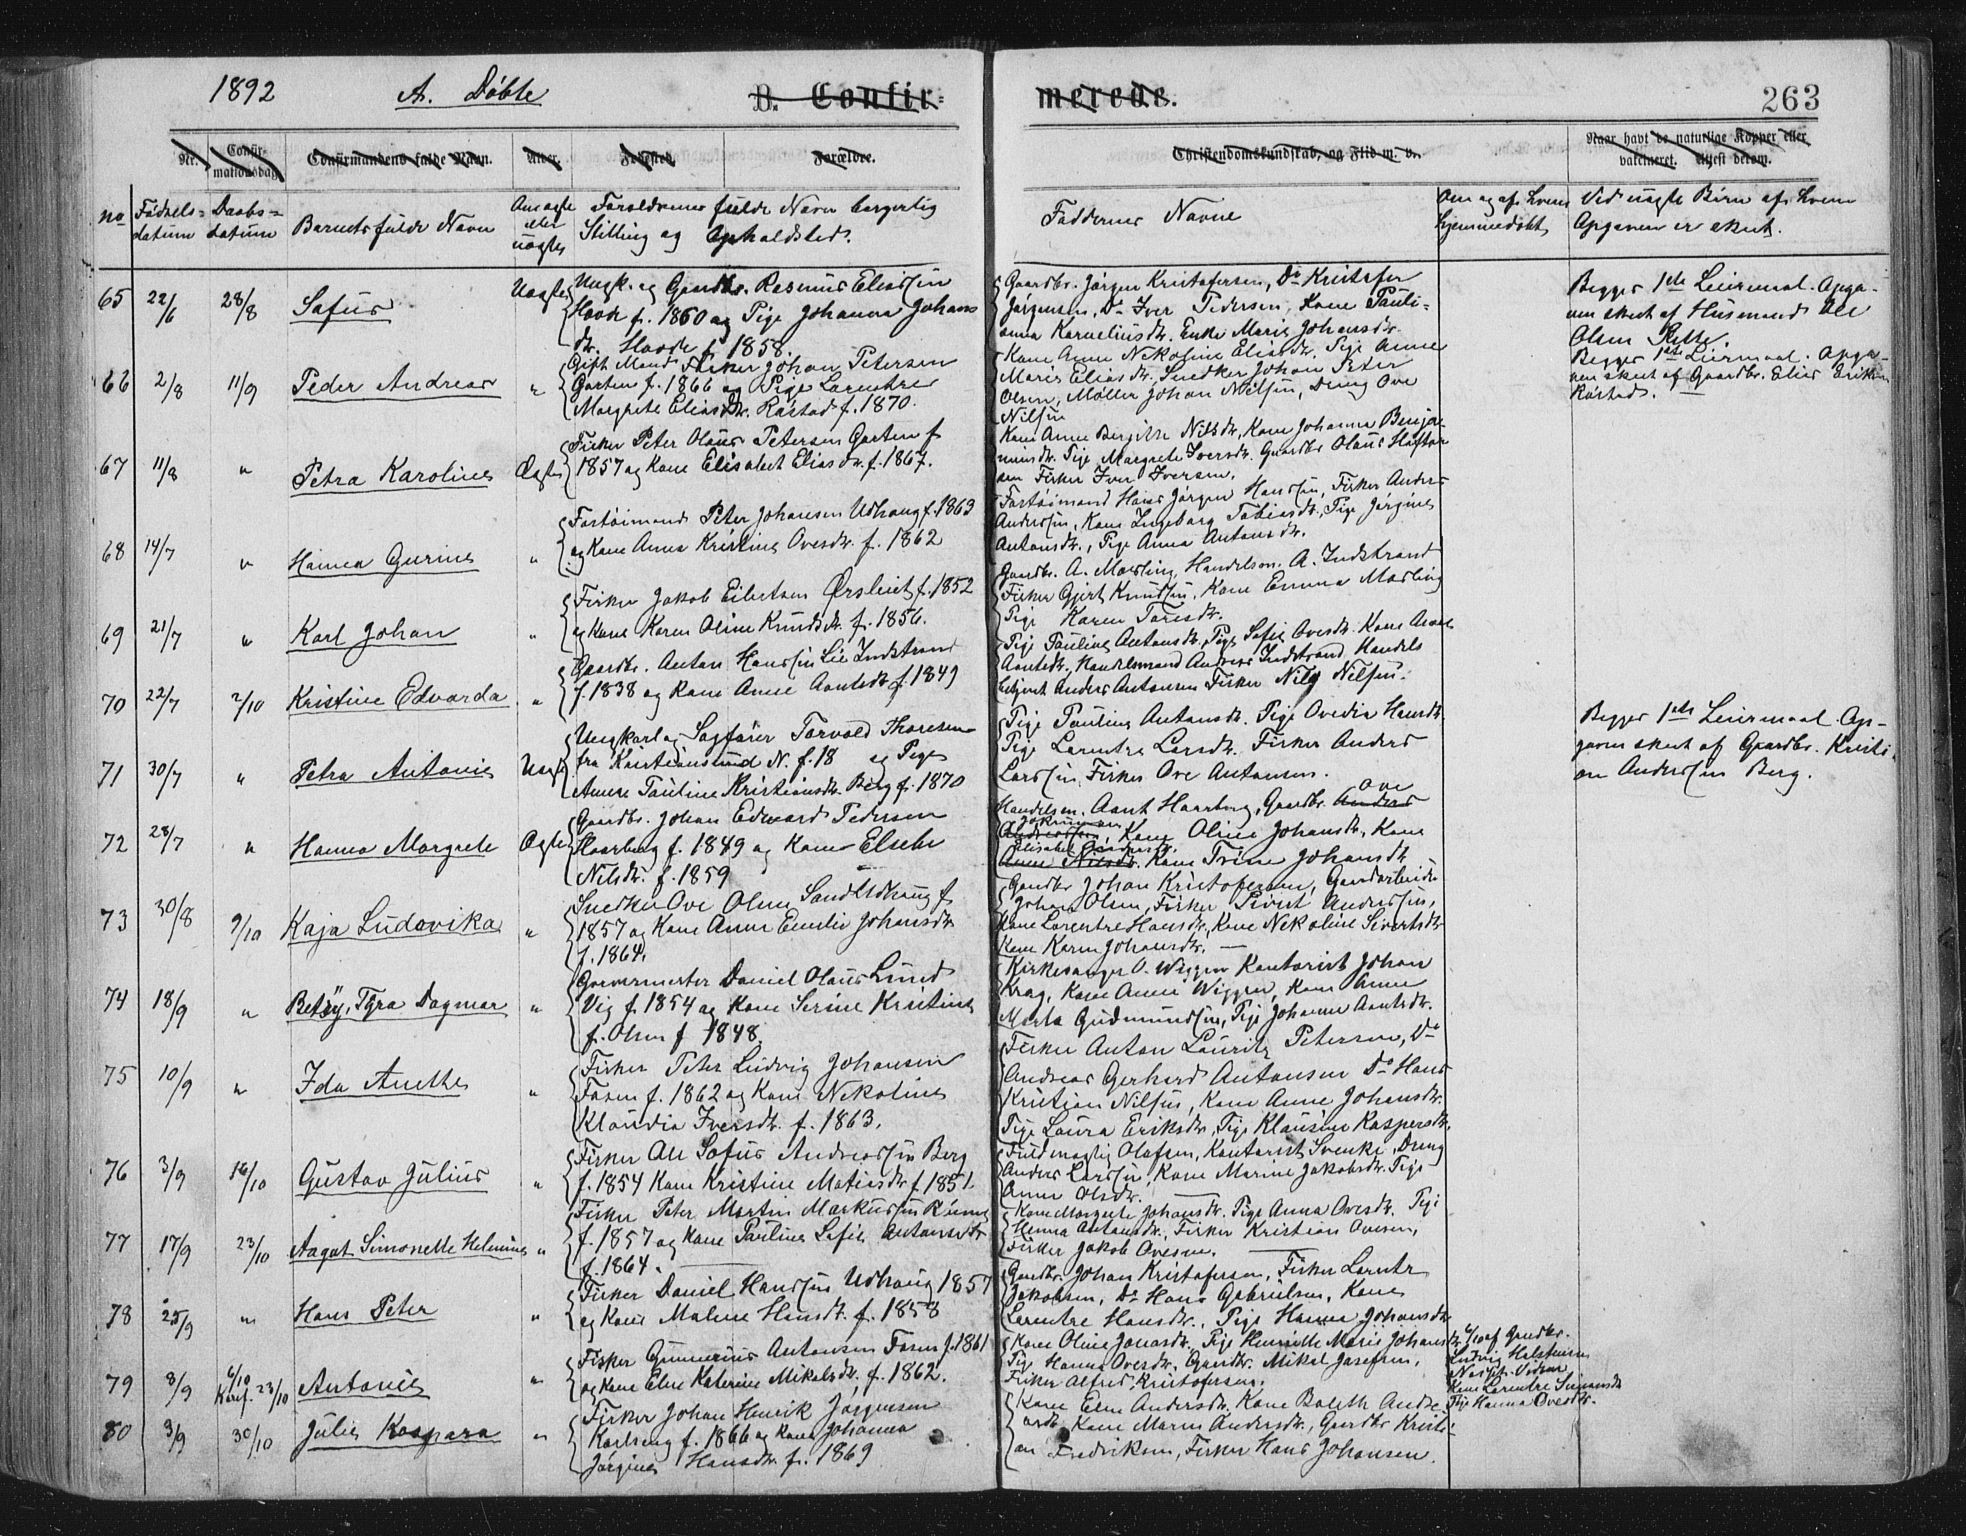 1892 A. Døbte B. Confir=
merede. 263
Nr. Confir-mationsdag Confirmandens fulde Navn. Alder. Fødested. Forældre.
Christendomskundskab, og Flid m. v. Naar havt de naturlige Kopper eller
vaccineret. Attest derom.
No Fødsels= datum Daabs= datum Barnets fulde Navn Om ægte eller uægte Forældrenes fulde Navn borgerlig
Stilling og Opholdsted.
Faddernes Navne Om og af hvem hjemmedøbt Ved uægte Børn af hvem
Opgaven er skeet.
65 22/6 28/8 Sofus Uægte Ungk. og Gaardbr. Rasmus Eliassen
f. 1860 og Pige Johanna Johans
dtr. f. 1858.
Gaardbr. Jørgen Kristofersen, Do Kristofer
Jørgensen, Do Iver Pedersen, Kone Pauli-
anna Korneliusdtr. Enke Marie Johansdtr.
Begges 1ste Leiermaal. Opga-
ven skeet af Husmand Ole
Olsen
66 2/8 11/9 Peder Andreas " Gift Mand Fisker Johan Petersen
Garten f. 1866 og Pige Larentse
Margrete Eliasdtr. Røstad f. 1870.
Kone Anne Nekoline Eliasdtr. Pige Anne
Marie Eliasdtr. Snedker Johan Peter
Olsen, Møller Johan Nilsen, Dreng Ove
Nilsen
Begges 1ste Leiermaal. Opga-
ven skeet af Gaardbr. Elias Eriksen
Røstad.
67 11/8 " Petra Karoline Ægte Fisker Peter Olaus Petersen Garten f
1857 og Kone Elisabet Eliasdtr. f. 1867.
Kone Anne Bergitte Nilsdtr, Kone Johanna Benja-
minsdtr. Pige Margrete Iversdtr. Gaardbr Olaus
sen Fisker Iver Iversen.
68 14/7 " Hanna Gurine " Fartøimand Peter Johansen Udhaug f. 1863
og Kone Anna Kristine Ovesdtr. f. 1862
Fartøimand Hans Jørgen Hanssen, Fisker Anders
Anderssen, Kone Ingeborg Tobiasdtr, Pige Jørgine
Antonsdtr., Pige Anna Antonsdtr.
69 21/7 " Karl Johan " Fisker Jakob Eilertsen Ørsleit f. 1852
og Kone Karen Oline Knudsdtr. f. 1856.
Gaardbr. A. Mørling, Handelsm. A. Indstrand
Fisker Gjert Knudsen, Kone Emma Mørling
Pige Karen Toresdtr.
70 22/7 2/10 Kristine Edvarda " Gaardbr. Anton Hanssen Lie Indstrand
f. 1838 og Kone Anne Aontsdtr f. 1849
Pige Pauline Antonsdtr, Pige Sofie Ovesdtr. Kone Anne
Aontsdtr, Handelsmand Andreas Indstrand Handels
betjent Anders Antonsen Fisker Nils Nilsen.
71 30/7 " Petra Antonie Uægte Ungkarl og Sagfører Torvald Thoresen
fra Kristiansund N. f. 18 og Pige
Anne Pauline Kristiansdtr. Berg f. 1870
Pige Pauline Antonsdtr. Pige Ovedia Hansdtr.
Pige Larentse Larsdtr. Fisker Anders
Larssen, Fisker Ove Antonsen.
Begges 1ste Leiermaal. Op-
gaven skeet af Gaardbr. Kristi-
an Anderssen Berg.
72 28/7 " Hanna Margrete Ægte Gaardbr. Johan Edvard Pedersen
Haarberg f. 1849 og Kone Elsebe
Nilsdtr. f. 1859
Handelsm. Aant Haarberg, Gaardbr. Anders Ove
Andreassen, Kone Oline Johansdtr, Kone
Anne Nilsdtr. Elisabet Kone Trine Johansdtr
73 30/8 9/10 Kaja Ludovika " Snedker Ove Olsen Sand Udhaug f
1857 og Kone Anne Emilie Johansdtr
f. 1864.
Gaardbr Johan Kristofersen, Gaardarbeider
Johan Olsen, Fisker Sivert Anderssen,
Kone Larentse Hansdtr, Kone Nekoline Sivertsdtr
Kone Karen Johansdtr.
74 18/9 " Betsy, Tyra Dagmar " Garvermester Daniel Olaus Lund
Vig f. 1854 og Kone Serine Kristine
f. Olsen f 1848
Kirkesanger O. Wiggen Kontorist Johan
Krag, Kone Anne Wiggen, Kone Anne
Marta Gudmundsen, Pige Johanna Aontsdtr.
75 10/9 " Ida Anethe " Fisker Peter Ludvig Johansen
Fosen f. 1862 og Kone Nekoline
Klaudia Iversdtr. f. 1863.
Fisker Anton Lauritz Petersen, Do
Andreas Gerhard Antonsen Do Hans
Kristian Nilsen, Kone Anne Johansdtr.
Pige Laura Eriksdtr. Pige Klausine Kaspersdtr.
76 3/9 16/10 Gustav Julius " Fisker Ole Sofus Andreassen Berg
f. 1854 Kone Kristine Matiasdtr f. 1851.
Fuldmægtig Olafsen, Kontorist Svenke, Dreng
Anders Larssen, Kone Marine Jakobsdtr. Pige
Anne Olsdtr.
77 17/9 23/10 Aagot Simonette Helmine " Fisker Peter Martin Markussen
f. 1857 og Kone Pauline Sofie Antonsdtr
f. 1864.
Kone Margrete Johansdtr. Pige Anna Ovesdtr. Pige
Hanna Antonsdtr, Fisker Kristian Ovesen,
Fisker Jakob Ovesen.
78 25/9 " Hans Peter " Fisker Daniel Hanssen Udhaug 1857
og Kone Malene Hansdtr. f. 1858
Gaardbr. Johan Kristofersen, Fisker Larents
Jakobsen, Do Hans Gabrielsen, Kone
Larentse Hansdtr., Pige Hanna Johansdtr
79 8/9 6/10 Konf. 23/10 Antonie " Fisker Gunnerius Antonsen Fosen f. 1861
og Kone Else Katerine Mikalsdtr. f. 1862.
Kone Oline Jonasdtr, Pige Henriette Marie Johans
Pige Hanna Ovesdtr, Gaardbr. Mikal Josefsen,
Fisker Alfred Kristofersen.
6/10 af Gaardbr.
Ludvig Holstensen
Kone Larentse Simonsdtr
Pige Hanna Ovesdtr.
80 3/9 30/10 Julie Kaspara " Fisker Johan Henrik Jørgensen
Karlseng f. 1866 og Kone Johanna
Jørgine Hansdtr. f. 1869
Kone Elen Andersdtr. Kone Boleth Andre-
asdtr, Kone Maren Andersdtr, Gaardbr Kristi-
an Fredriksen, Fisker Hans Johansen.